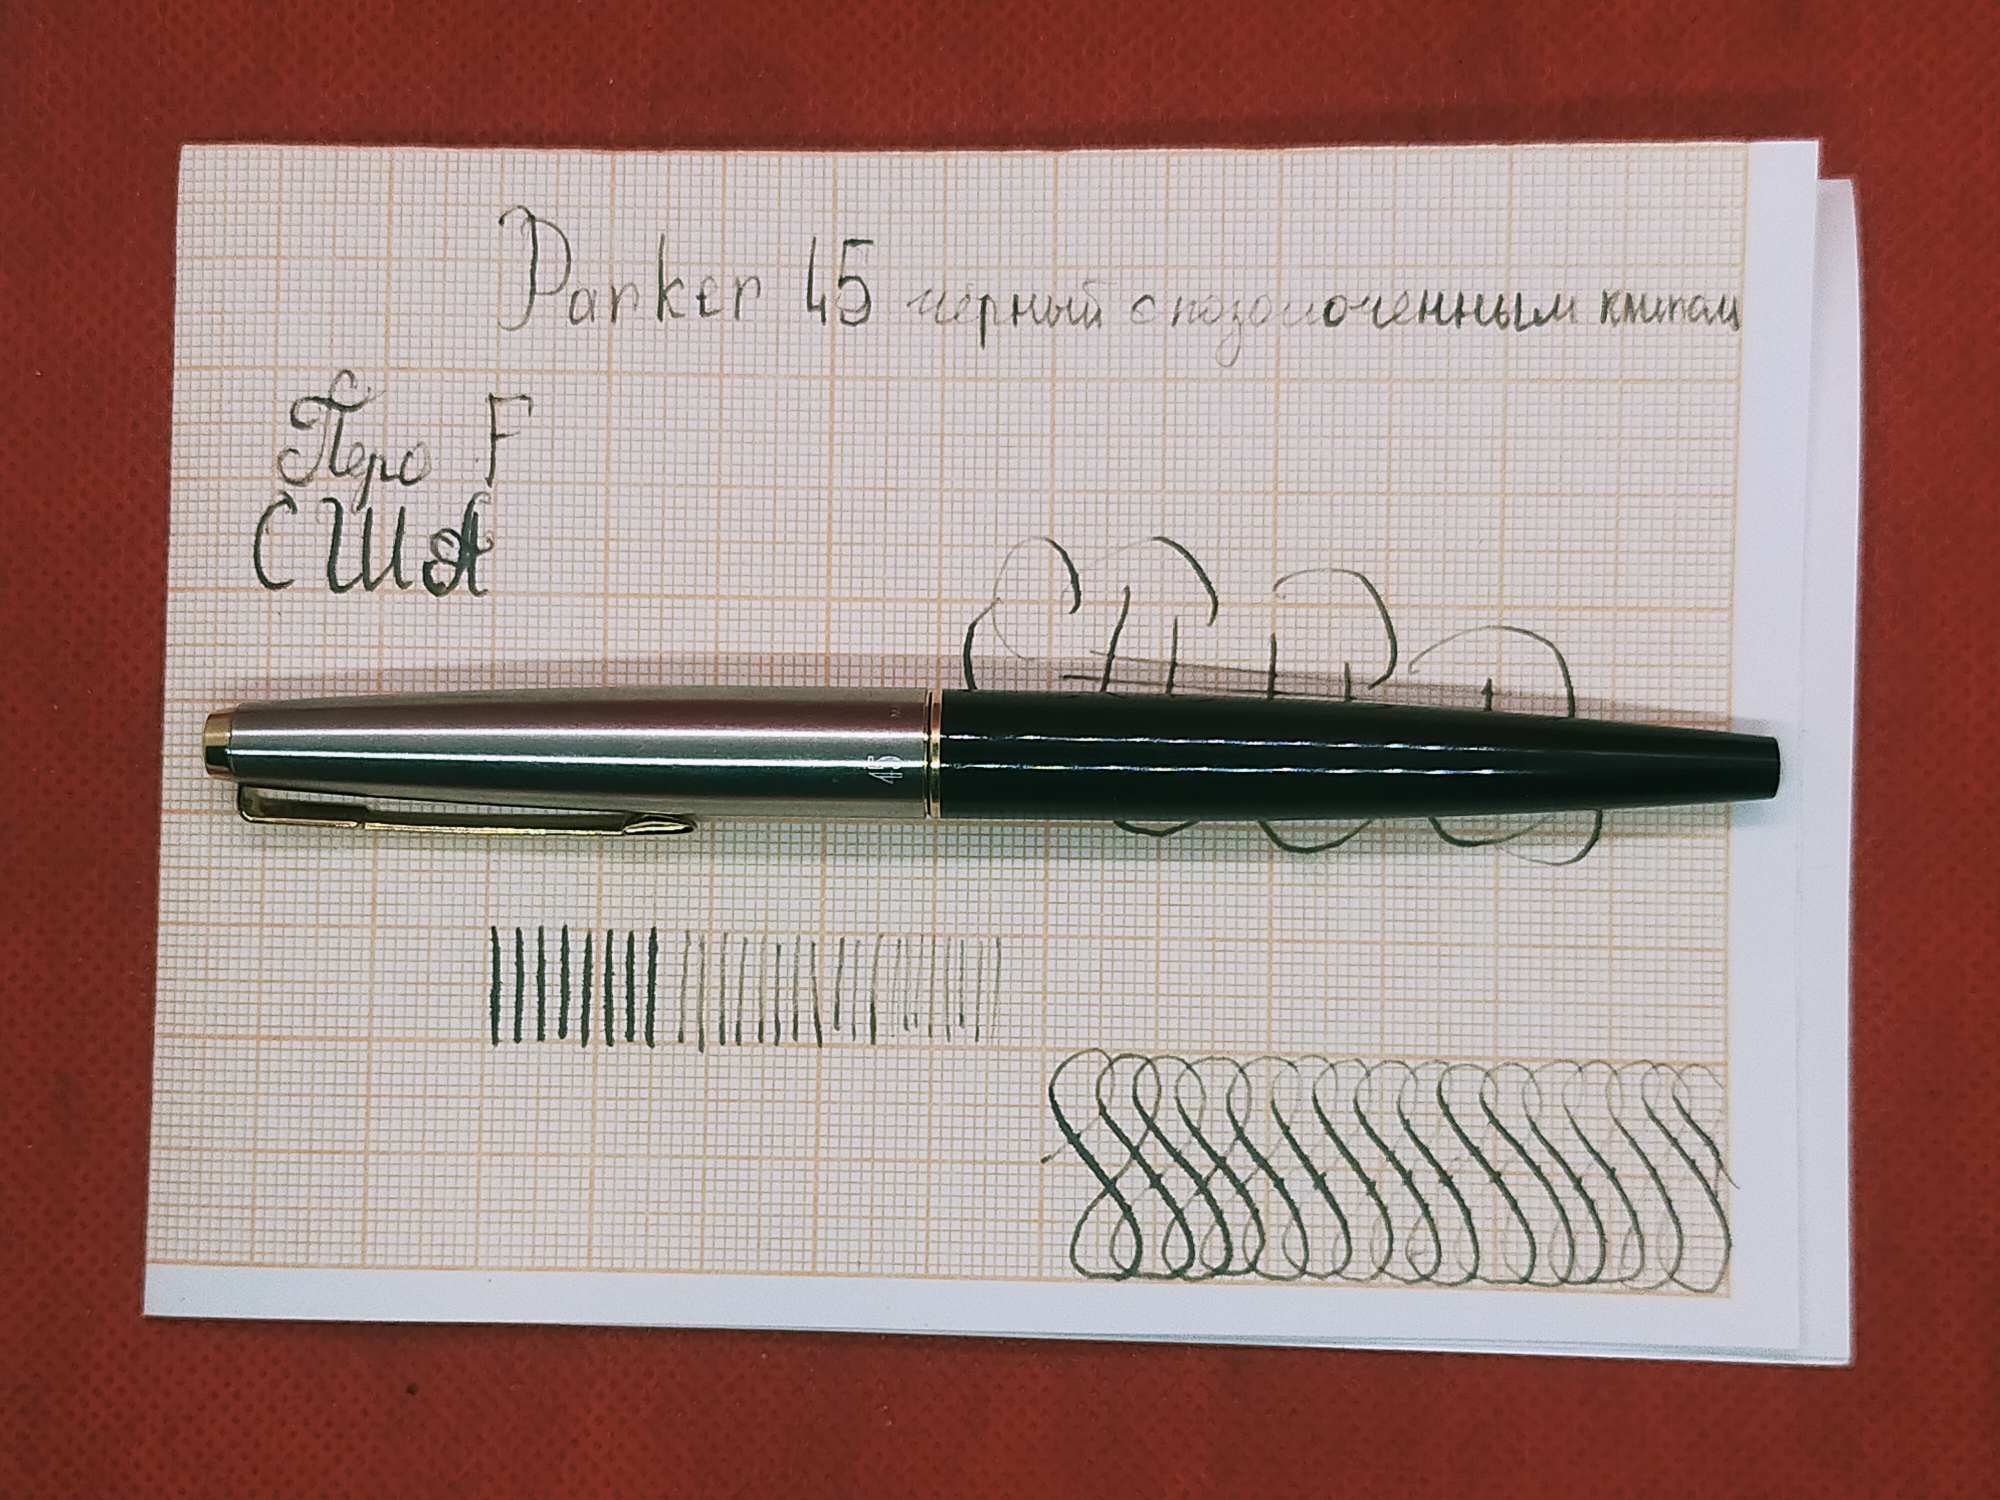 Parker 45 черный с позолоченным клипом
Перо F
США
45